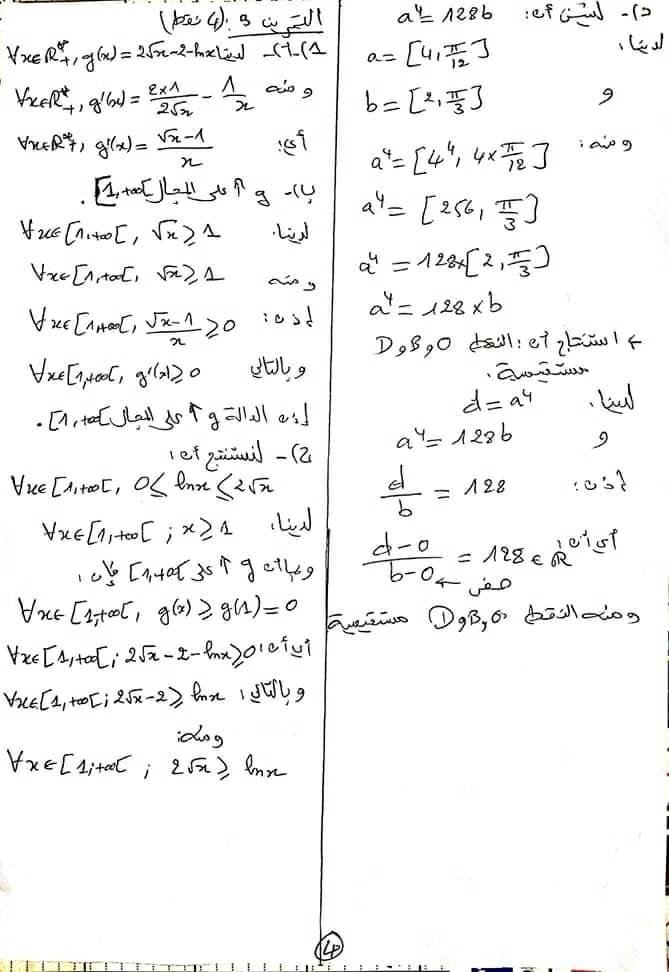 د)- لنبين أن: a⁴ = 128b
لدينا: a = [4, π/12]
و b = [2, π/3]
ومنه: a⁴ = [4⁴, 4×π/12]
a⁴ = [256, π/3]
a⁴ = 128×[2, π/3]
a⁴ = 128×b
استنتاج أن: النقط O و B و D
مستقيمية.
لدينا: d = a⁴
و a⁴ = 128b
إذن: d/b = 128
أي أن: (d-0)/(b-0) = 128 ∈ ℝ
صفر
ومنه النقط O و B و D مستقيمية
التمرين 3: (4 نقط)
1)-أ)- لدينا ∀x∈ℝ*₊, g(x) = 2√x-2-lnx
ومنه ∀x∈ℝ*₊, g'(x) = (2×1)/(2√x) - 1/x
أي: ∀x∈ℝ*₊, g'(x) = (√x-1)/x
ب)- g ↑ على المجال [1,+∞[.
لدينا: ∀x∈[1,+∞[, √x ≥ 1
ومنه ∀x∈[1,+∞[, √x ≥ 1
إذن: ∀x∈[1,+∞[, (√x-1)/x ≥ 0
وبالتالي ∀x∈[1,+∞[, g'(x) ≥ 0
إذن الدالة g ↑ على المجال [1,+∞[.
ج)- لنستنتج أن:
∀x∈[1,+∞[, 0 ≤ lnx ≤ 2√x
لدينا: ∀x∈[1,+∞[ ; x ≥ 1
وبما أن g ↑ على [1,+∞[ فإن:
∀x∈[1,+∞[, g(x) ≥ g(1) = 0
أي أن: ∀x∈[1,+∞[ ; 2√x-2-lnx ≥ 0
وبالتالي: ∀x∈[1,+∞[ ; 2√x-2 ≥ lnx
ومنه:
∀x∈[1;+∞[ ; 2√x ≥ lnx
4